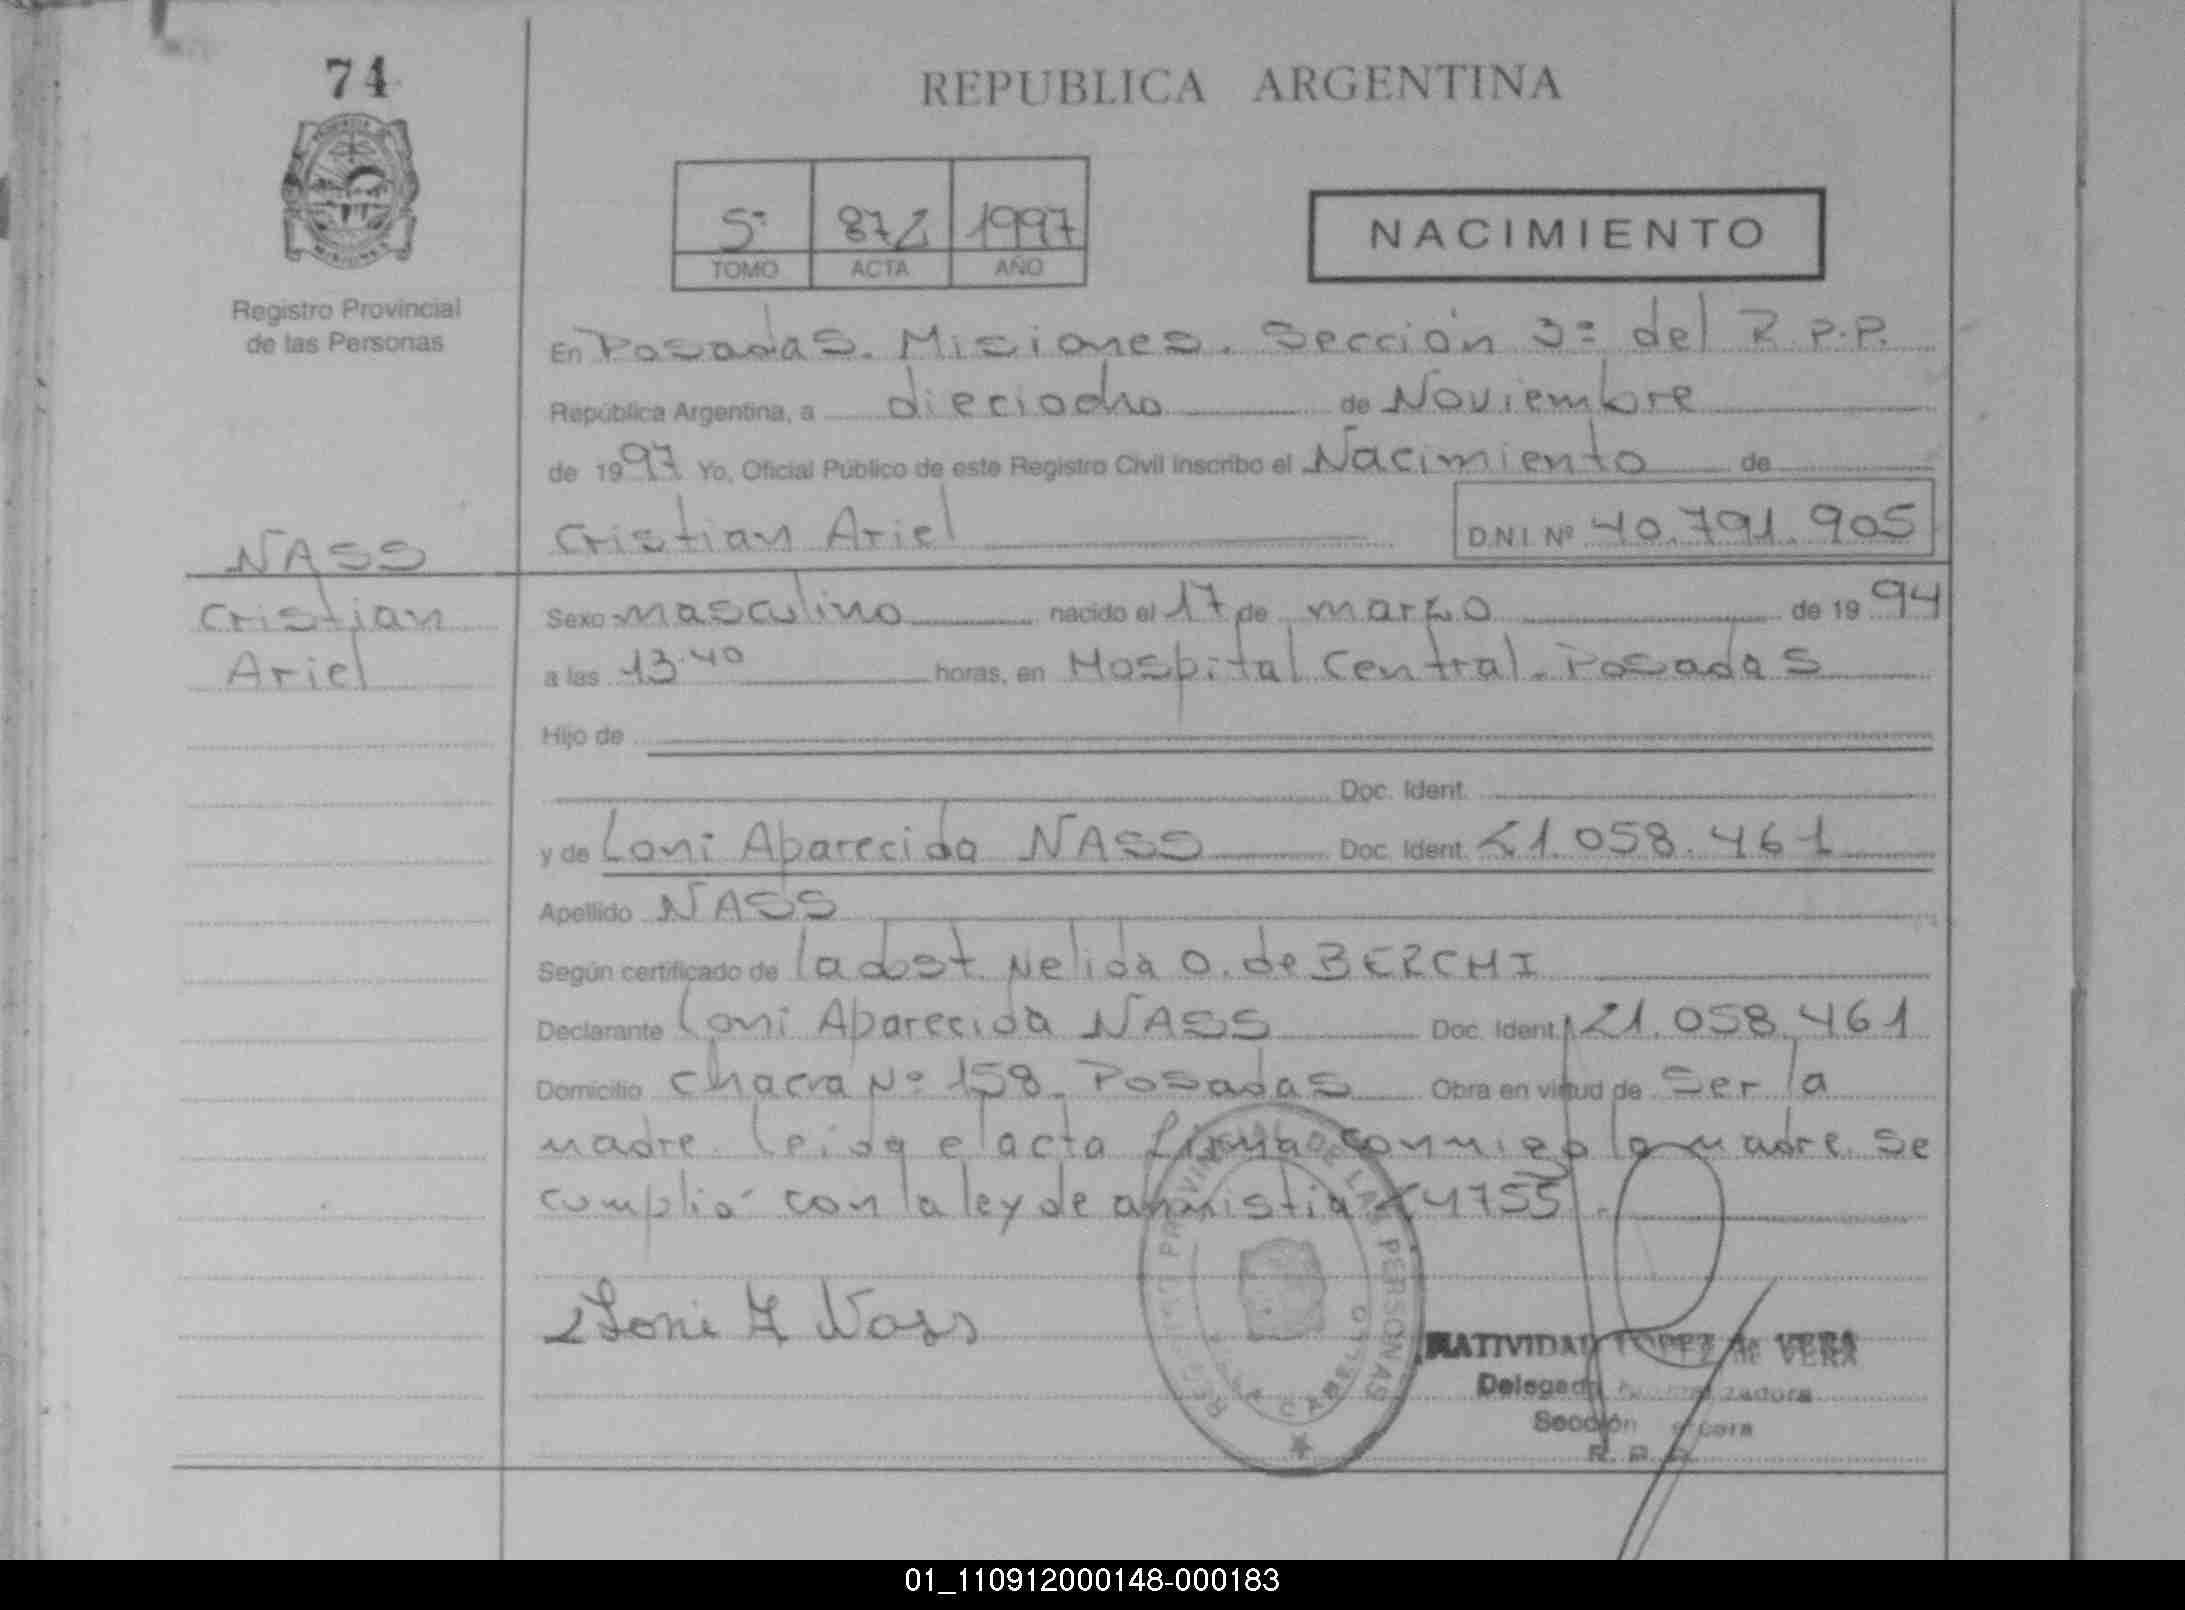 74
REPUBLICA ARGENTINA
5º 872 1997
TOMO ACTA AÑO
NACIMIENTO
Registro Provincial
de las Personas
En Posadas. Misiones. Sección 3º del R.P.P.
República Argentina, a dieciocho de Noviembre
de 1997 Yo, Oficial Público de este Registro Civil inscribo el Nacimiento de
Cristian Ariel D.N.I. Nº 40.791.905
NASS
Cristian
Ariel
Sexo masculino nacido el 17 de marzo de 1994
a las 13.40 horas, en Hospital Central. Posadas
Hijo de
Doc. Ident.
y de Loni Aparecida NASS Doc. Ident. 21.058.461
Apellido NASS
Según certificado de la obst. Nelida O. de BERCHI
Declarante Loni Aparecida NASS Doc. Ident. 21.058.461
Domicilio chacra Nº 158. Posadas Obra en virtud de ser la
madre. Leida el acta firma conmigo la madre. Se
cumplió con la ley de amnistia 24755.
Loni A Nass
REGISTRO PROVINCIAL DE LAS PERSONAS
CABELLO
NATIVIDAD LOPEZ de VERA
Delegada
Sección
R. P. P.
01_110912000148-000183